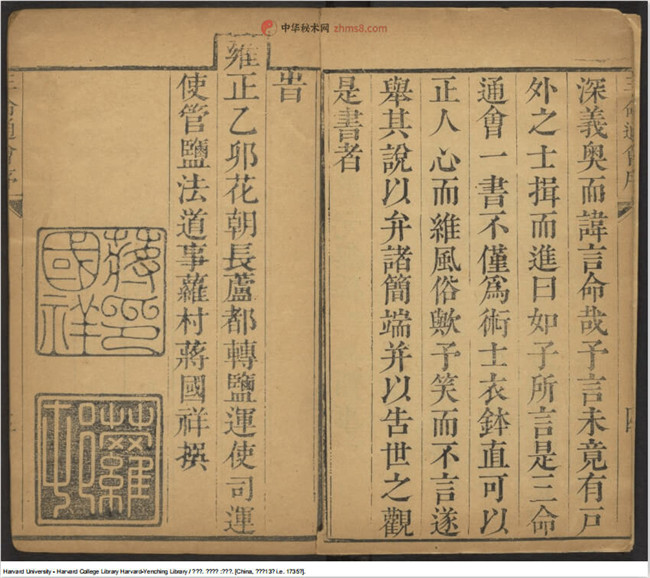 中华秘术网 zhms8.com
三命通會序
深義奥而諱言命哉予言未竟有戸
外之士揖而進曰如子所言是三命
通會一書不僅爲術士衣鉢直可以
正人心而維風俗歟予笑而不言遂
舉其說以弁諸簡端并以告世之觀
是書者
旹
雍正乙卯花朝長蘆都轉鹽運使司運
使管鹽法道事蘿村蔣國祥撰
蔣國祥印
蘿村
三命通會序
Harvard University - Harvard College Library Harvard-Yenching Library / ???. ???? :???. [China, ???13? i.e. 1735?].